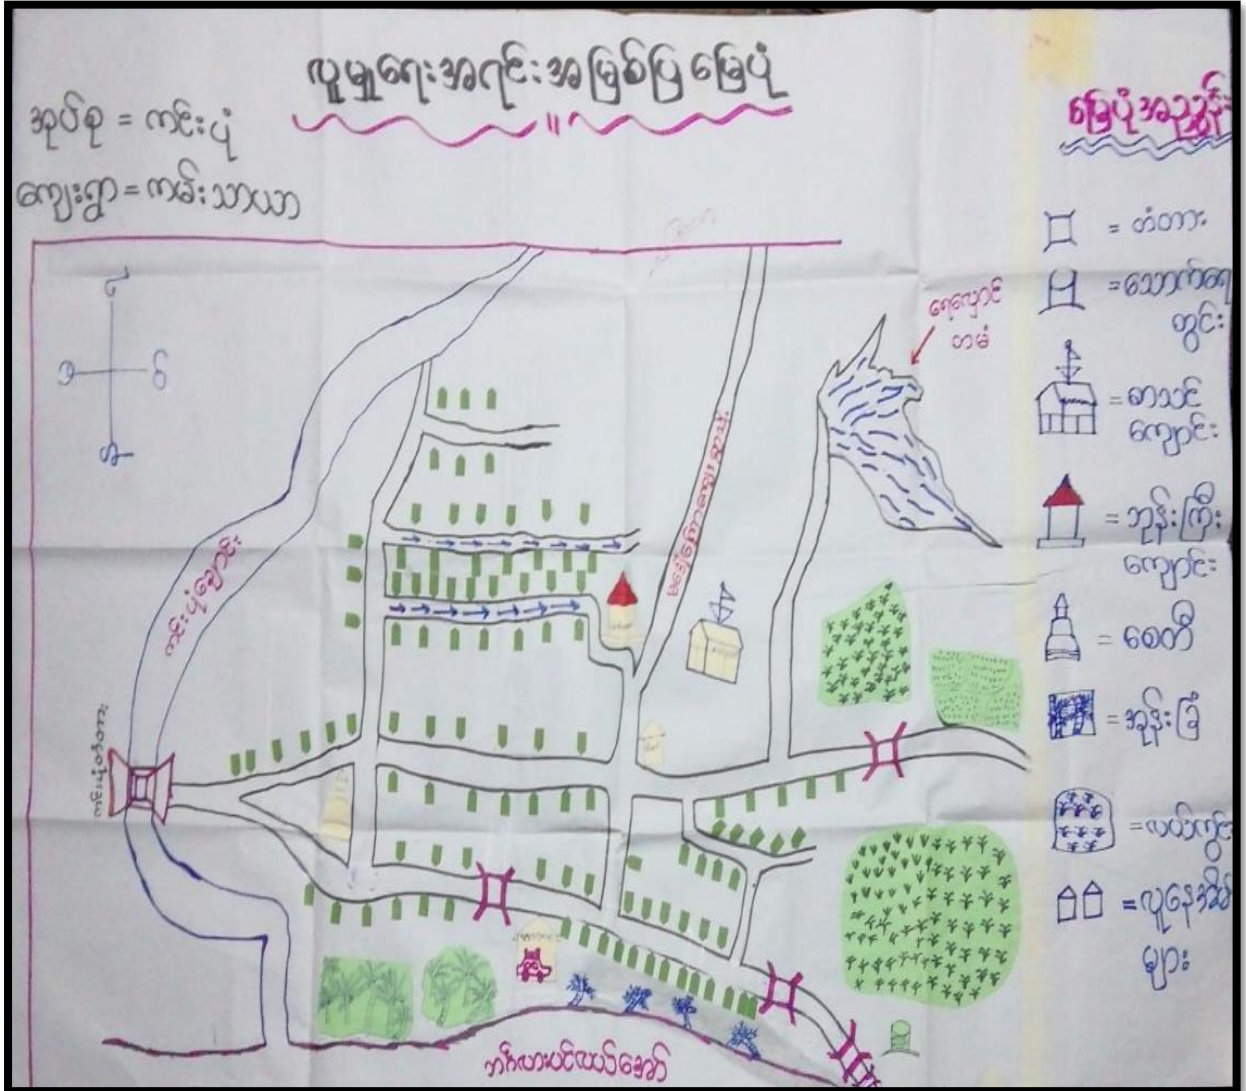 လူမှုရေးအရင်းအမြစ်ပြ မြေပုံ
အုပ်စု = ကင်းပုံ
ကျေးရွာ = ကမ်းသာယာ
မြေပုံအညွှန်း
= တံတား
= သောက်ရေ
တွင်း
= စာသင်
ကျောင်း
= ဘုန်းကြီး
ကျောင်း
= စေတီ
= အုန်းခြံ
= လယ်ကွင်း
= လူနေအိမ်
များ
ရေလှောင်
တမံ
ကင်းပုံချောင်း
ဘင်္ဂလားပင်လယ်အော်